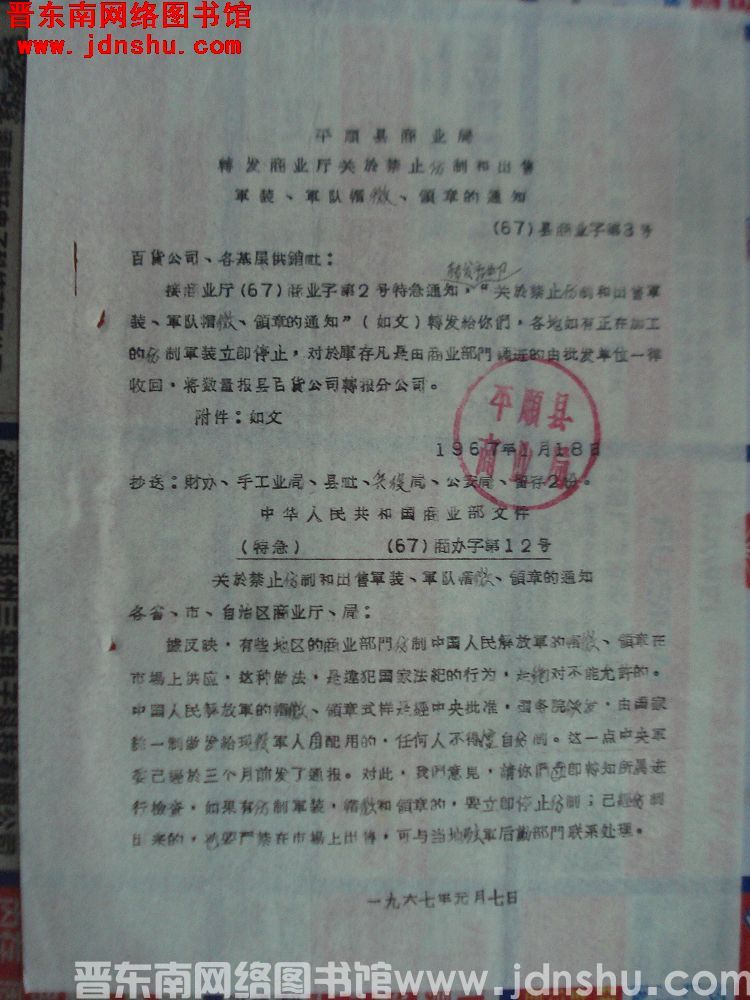 晋东南网络图书馆
www.jdnshu.com
平順县商业局
轉发商业厅关於禁止仿制和出售
軍装、軍队帽徽、領章的通知
(67)县商业字第3号
百貨公司、各基层供銷社:
接商业厅(67)商业字第2号特急通知,“关於禁止仿制和出售軍
装、軍队帽徽、領章的通知”(如文)轉发給你們,各地如有正在加工
的仿制軍装立即停止,对於庫存凡是由商业部門購进的由批发单位一律
收回,将数量报县百貨公司轉报分公司。
附件:如文
1967年1月18日
平順县
商业局
抄送:財办、手工业局、县社、兵役局、公安局、留存2份。
中华人民共和国商业部文件
(特急) (67)商办字第12号
关於禁止仿制和出售軍装、軍队帽徽、領章的通知
各省、市、自治区商业厅、局:
據反映,有些地区的商业部門仿制中国人民解放軍的帽徽、領章在
市場上供应,这种做法,是違犯国家法紀的行为,是絕对不能允許的。
中国人民解放軍的帽徽、領章式样是經中央批准,国务院頒发,由国家
統一制做发給現役軍人用配用的,任何人不得擅自仿制。这一点中央軍
委已經於三个月前发了通报。对此,我們意見,請你們立即轉知所属进
行檢查,如果有仿制軍装,帽徽和領章的,要立即停止仿制;已經仿制
出来的,也要严禁在市場上出售,可与当地駐軍后勤部門联系处理。
一九六七年元月七日
晋东南网络图书馆www.jdnshu.com